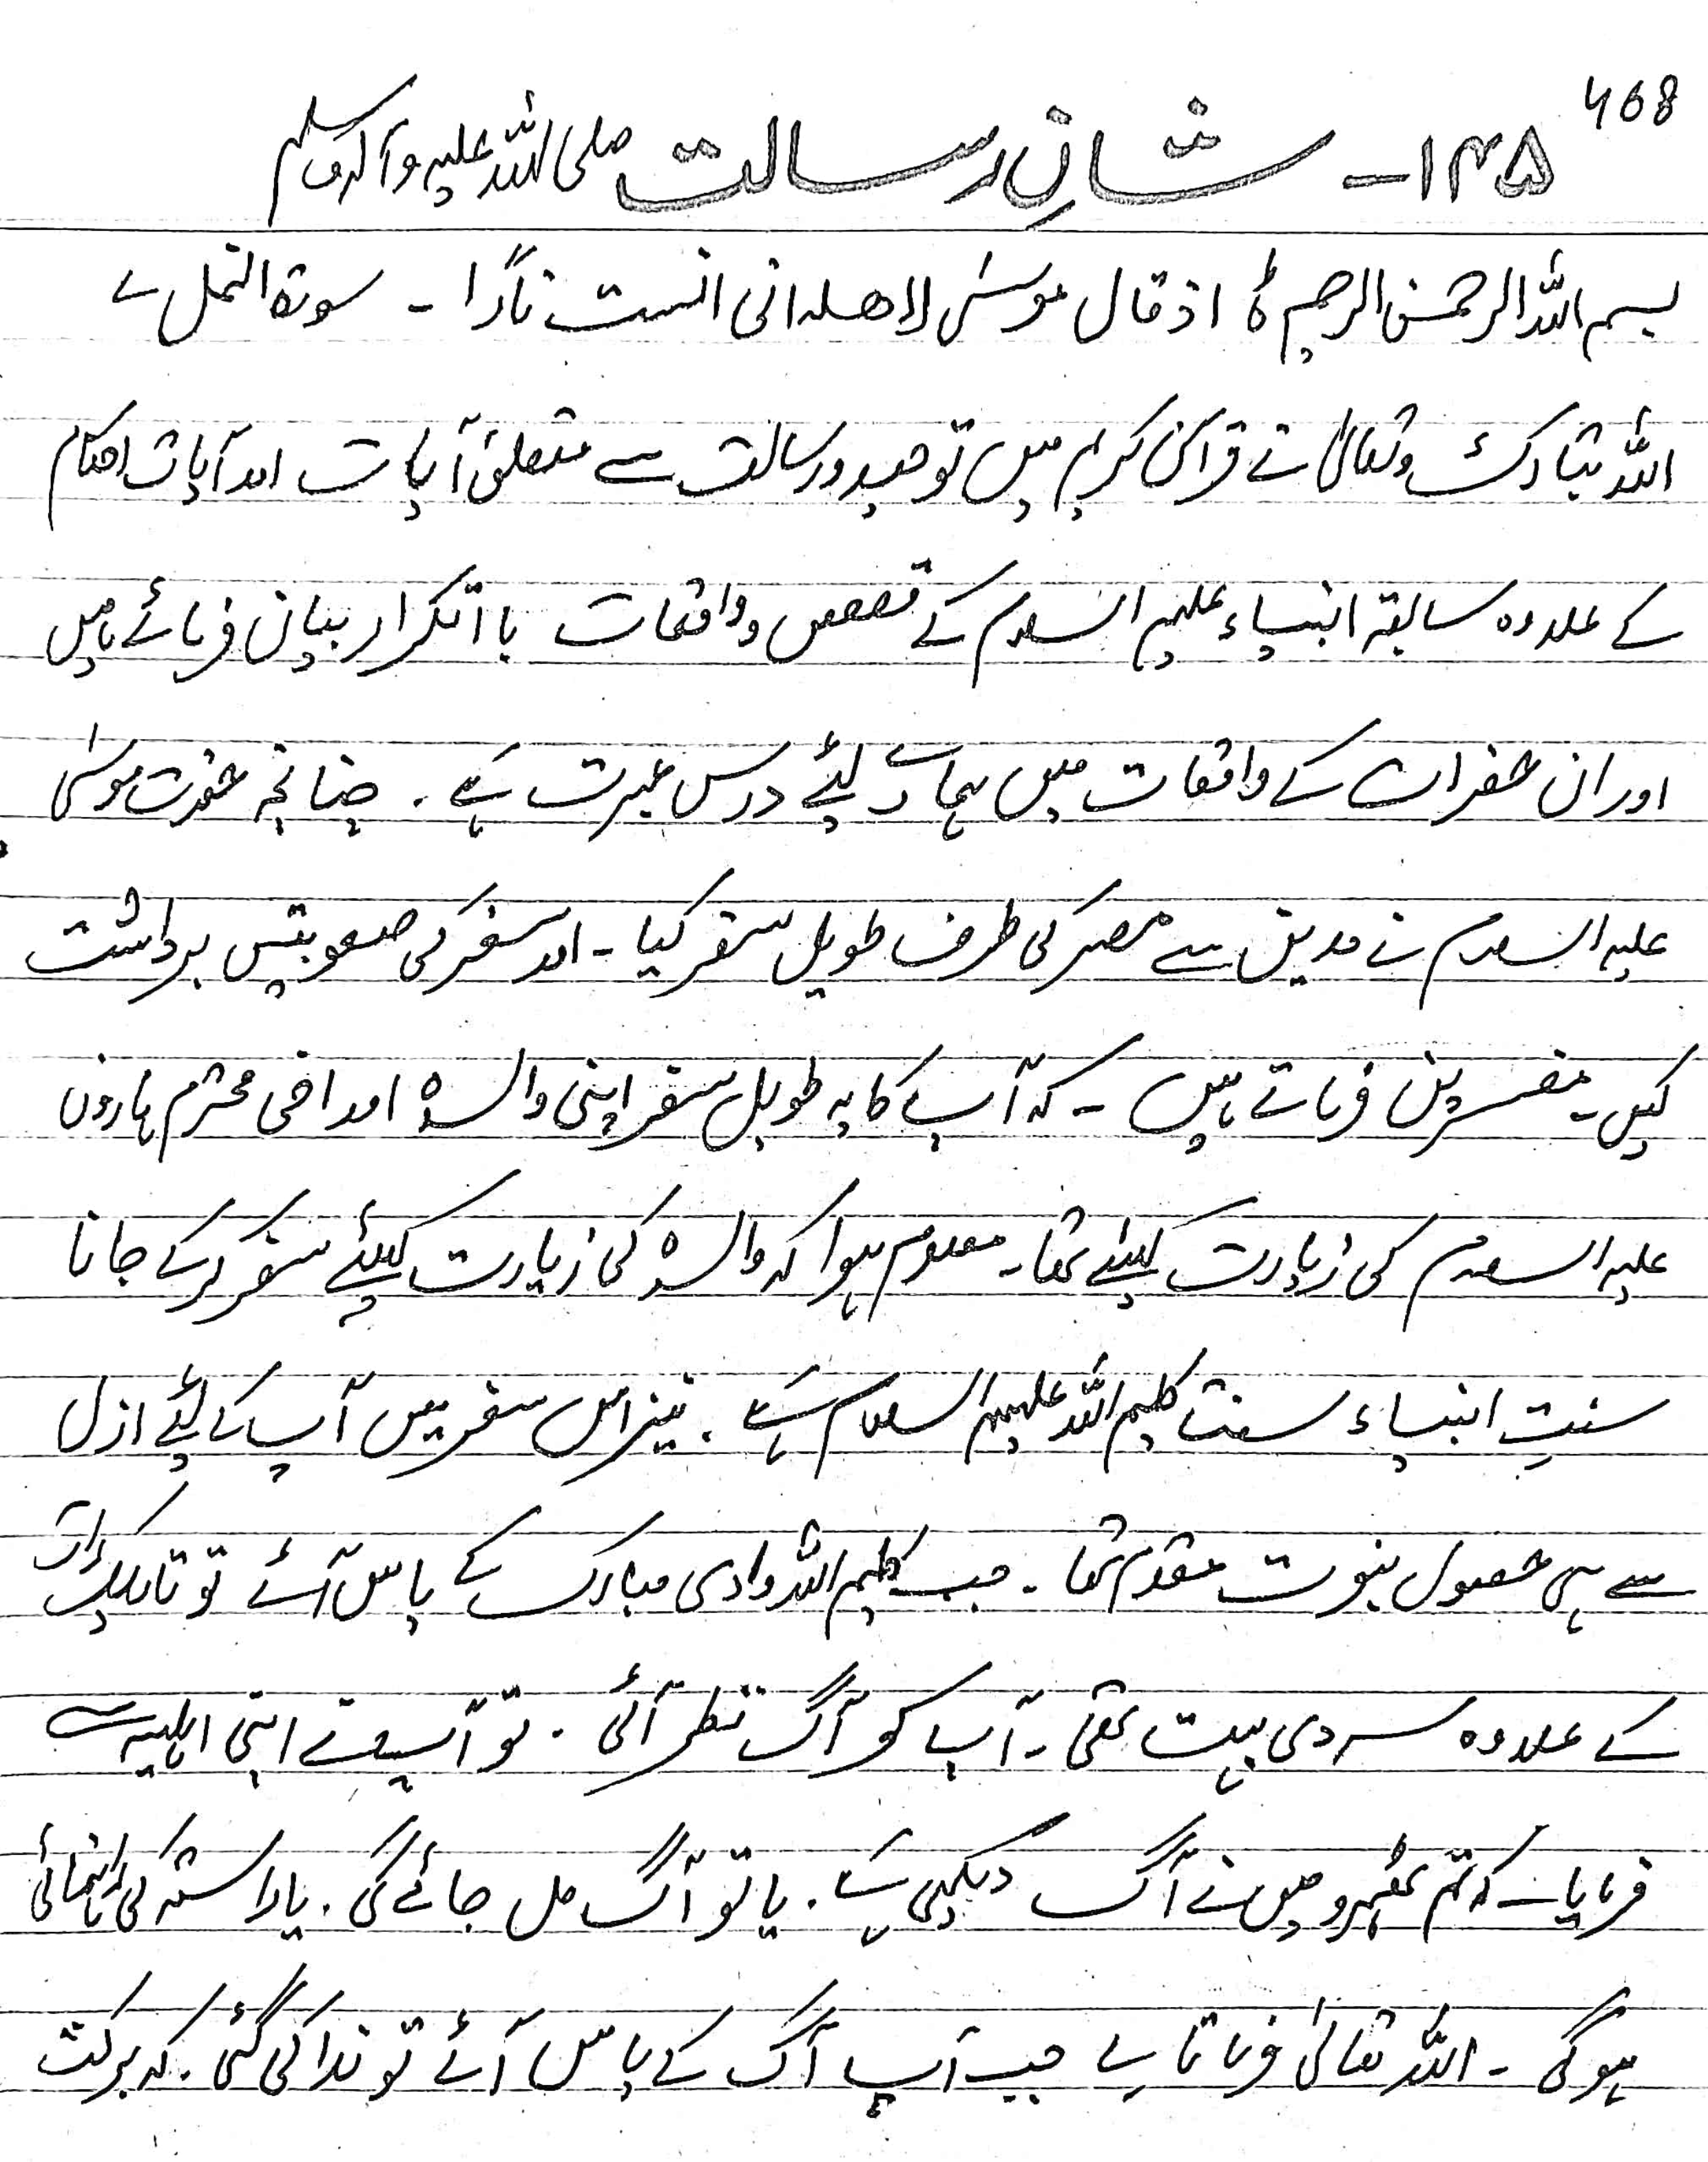 468
۱۴۵ - شانِ رسالت صلی اللہ علیہ وآلہ وسلم
بسم اللہ الرحمٰن الرحیم ط اذ قال موسیٰ لاھلہ انی انست نارا - سورۃ النمل ے
اللہ تبارک وتعالیٰ نے قرآن کریم میں توحید ورسالت سے متعلق آیات اور آیات احکام
کے علاوہ سابقہ انبیاء علیہم السلام کے قصص وواقعات باالتکرار بیان فرمائے ہیں
اور ان حضرات کے واقعات میں ہمارے لئے درس عبرت ہے . چنانچہ حضرت موسیٰ
علیہ السلام نے مدین سے مصر کی طرف طویل سفر کیا - اور سفر کی صعوبتیں برداشت
کیں - مفسرین فرماتے ہیں - کہ آپ کا یہ طویل سفر اپنی والدہ اور اخی محترم ہارون
علیہ السلام کی زیارت کیلئے تھا - معلوم ہوا کہ والدہ کی زیارت کیلئے سفر کر کے جانا
سنتِ انبیاء سنت کلیم اللہ علیہم السلام ہے . نیز اس سفر میں آپ کے لئے ازل
سے ہی حصول نبوت مقدم تھا - جب کلیم اللہ وادی مبارک کے پاس آئے تو تاریک رات
کے علاوہ سردی بہت تھی - آپ کو آگ نظر آئی . تو آپ نے اپنی اہلیہ سے
فرمایا - کہ تم ٹھہرو میں نے آگ دیکھی ہے . یا تو آگ مل جائے گی . یا راستہ کی راہنمائی
ہوگی - اللہ تعالیٰ فرماتا ہے جب آپ آگ کے پاس آئے تو ندا کی گئی . کہ برکت